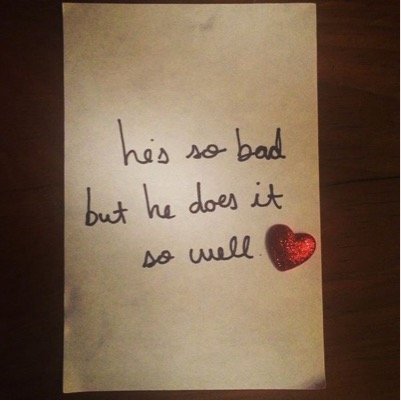 he's so bad
but he does it
so well